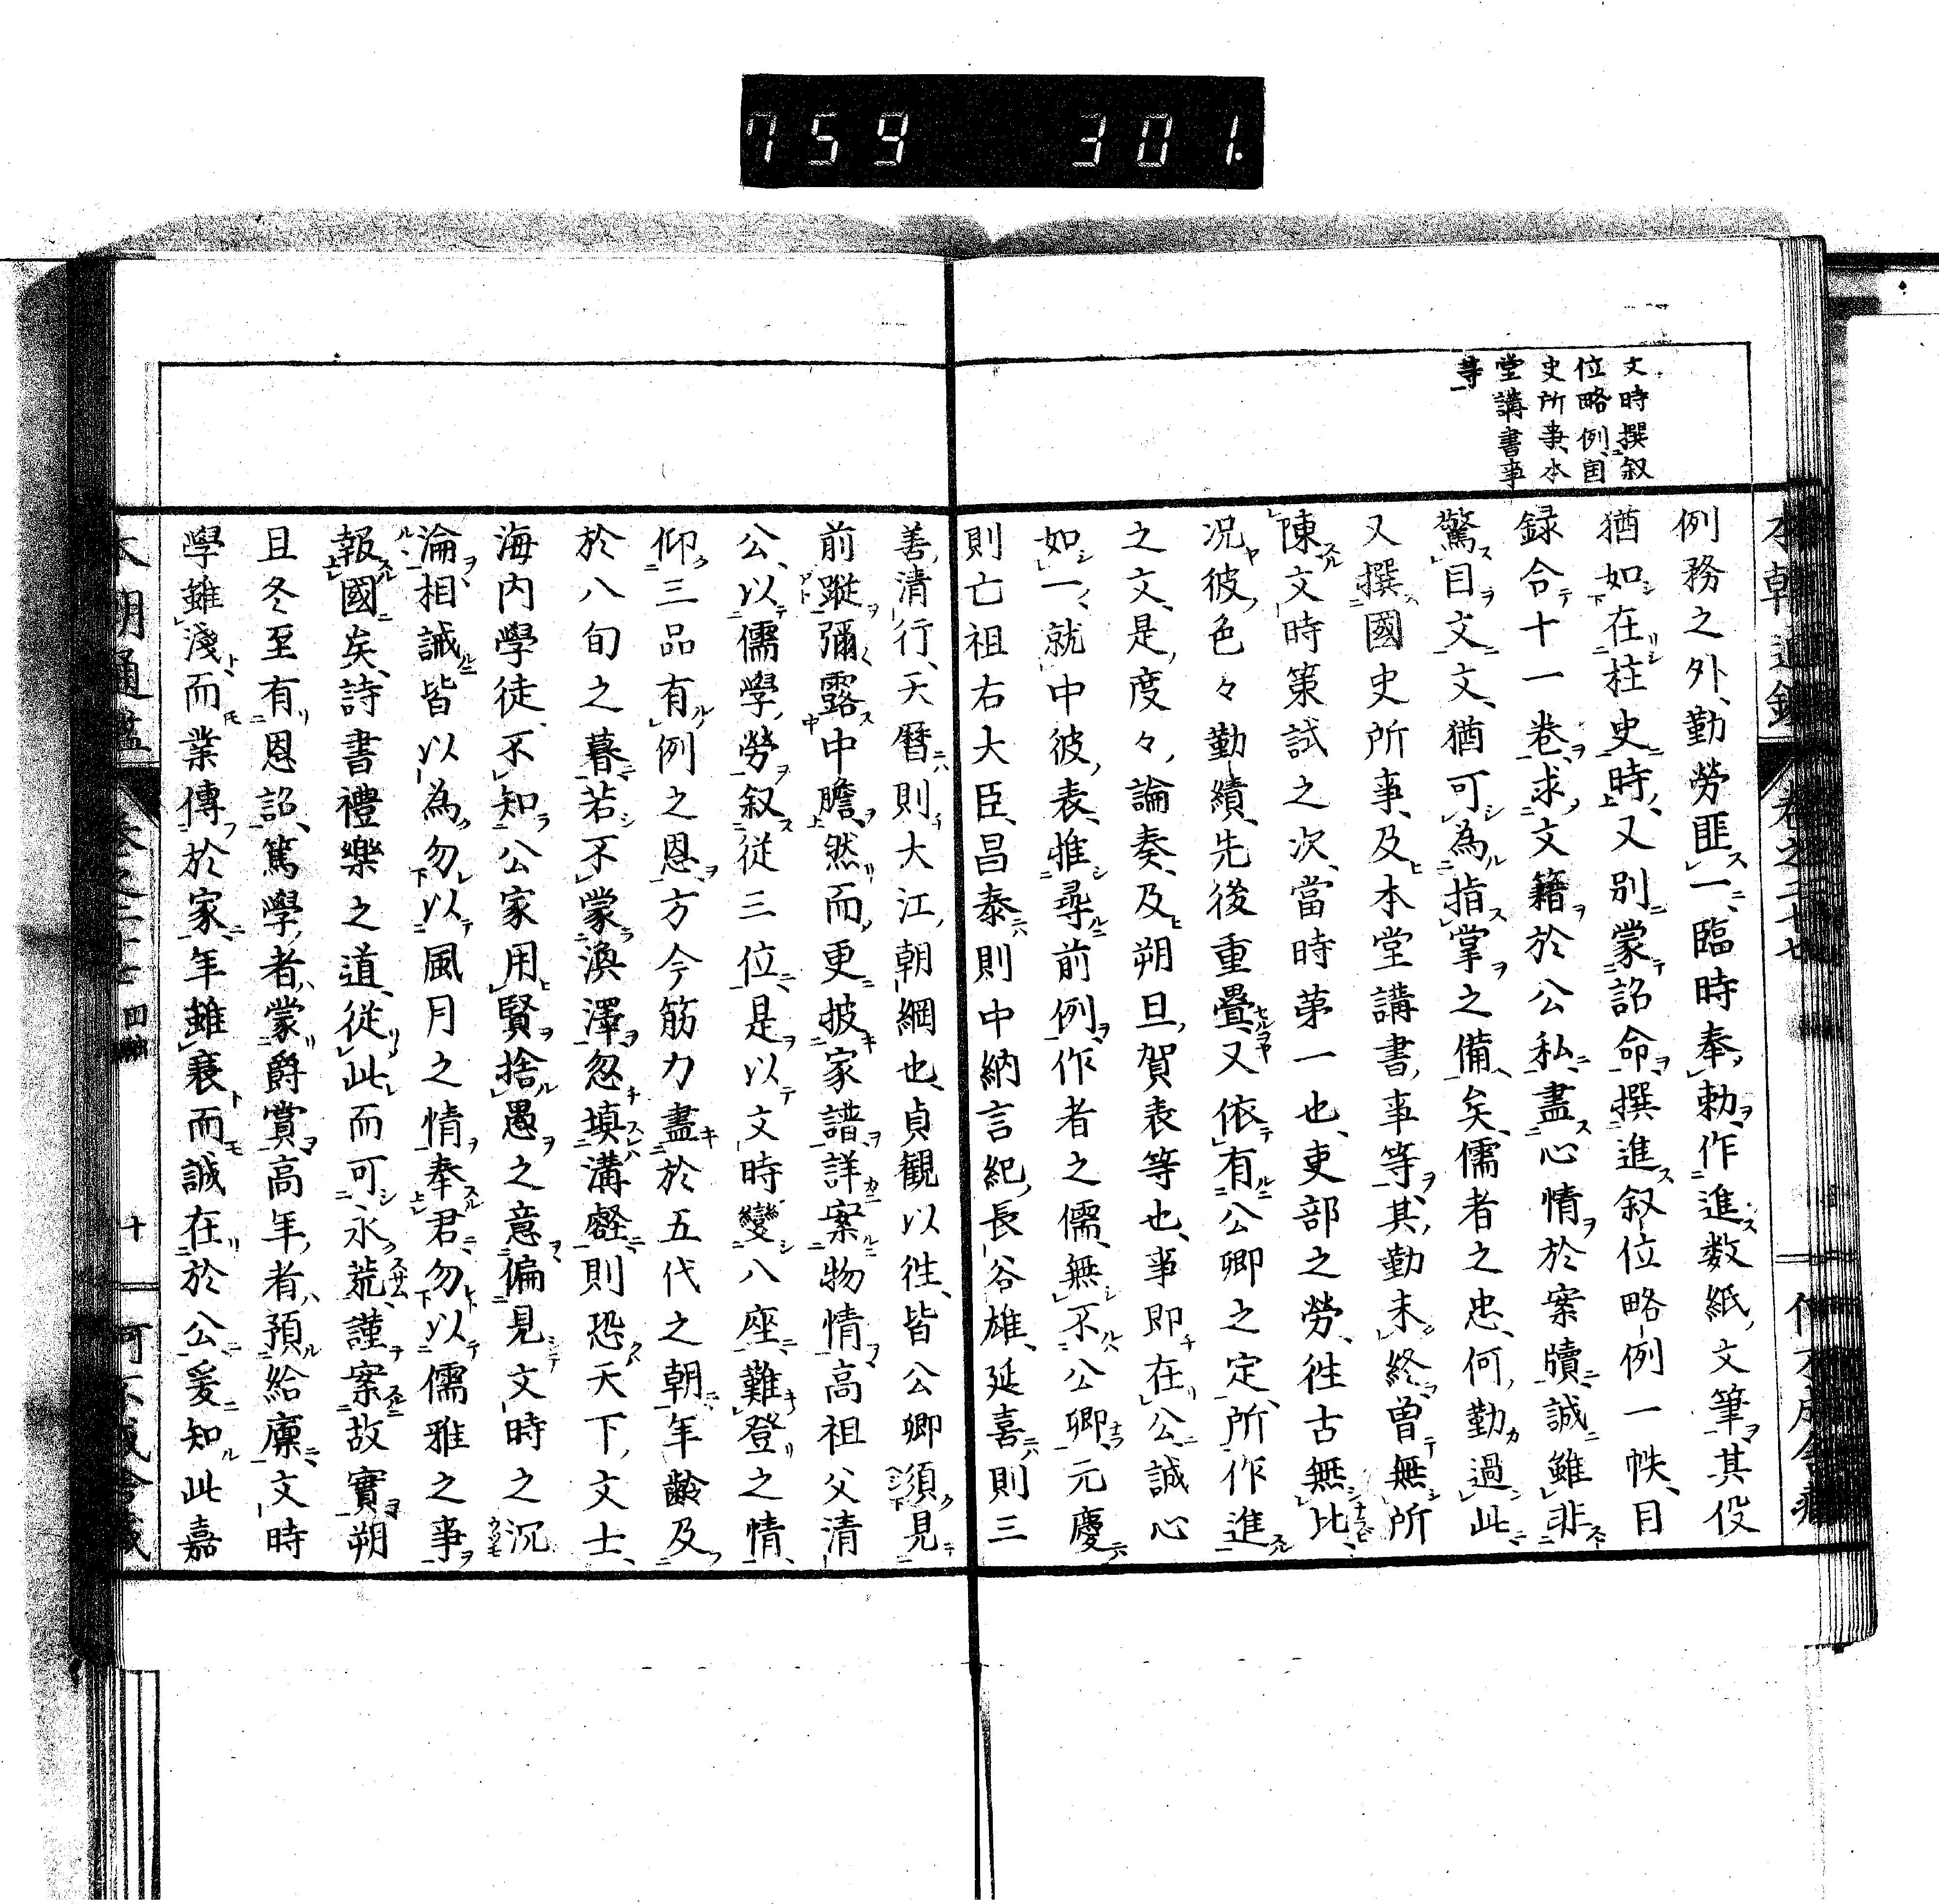 759 301.
文時撰叙
位略例、国
史所事、本
堂講書事
等
例務之外、勤勞匪一、臨時奉勅、作進数紙、文筆其役
猶如在柱史時、又別蒙詔命、撰進叙位略例一帙、目
録合十一卷、求文籍於公私、盡心情於案牘、誠雖非
驚目文文、猶可為指掌之備矣、儒者之忠、何勤過此
又撰國史所事、及本堂講書事等、其勤未終、曽無所
陳、文時策試之次、當時第一也、吏部之勞、徃古無比、
况彼色々勤績、先後重疊、又依有公卿之定、所作進
之文、是度々論奏、及朔旦賀表等也、事即在公、誠心
如一、就中彼表、惟尋前例、作者之儒、無不公卿、元慶
則亡祖右大臣、昌泰則中納言紀長谷雄、延喜則三
善清行、天曆則大江朝綱也、貞観以徃、皆公卿須見
前蹤彌露中膽、然而更披家譜、詳案物情、高祖父清
公、以儒學勞叙従三位、是以文時變八座難登之情、
仰三品有例之恩、方今筋力盡於五代之朝、年齡及
於八旬之暮、若不蒙渙澤、忽填溝壑、則恐天下文士、
海内學徒、不知公家用賢捨愚之意、偏見文時之沉
淪、相誡皆以為勿以風月之情奉君、勿以儒雅之事
報國矣、詩書禮樂之道、従此而可永荒、謹案故實、朔
且冬至有恩詔、篤學者蒙爵賞、高年者預給廩、文時
學雖淺而業傳於家、年雖衰而誠在於公、爰知此嘉
本朝通鑑 卷之二十七
四
十